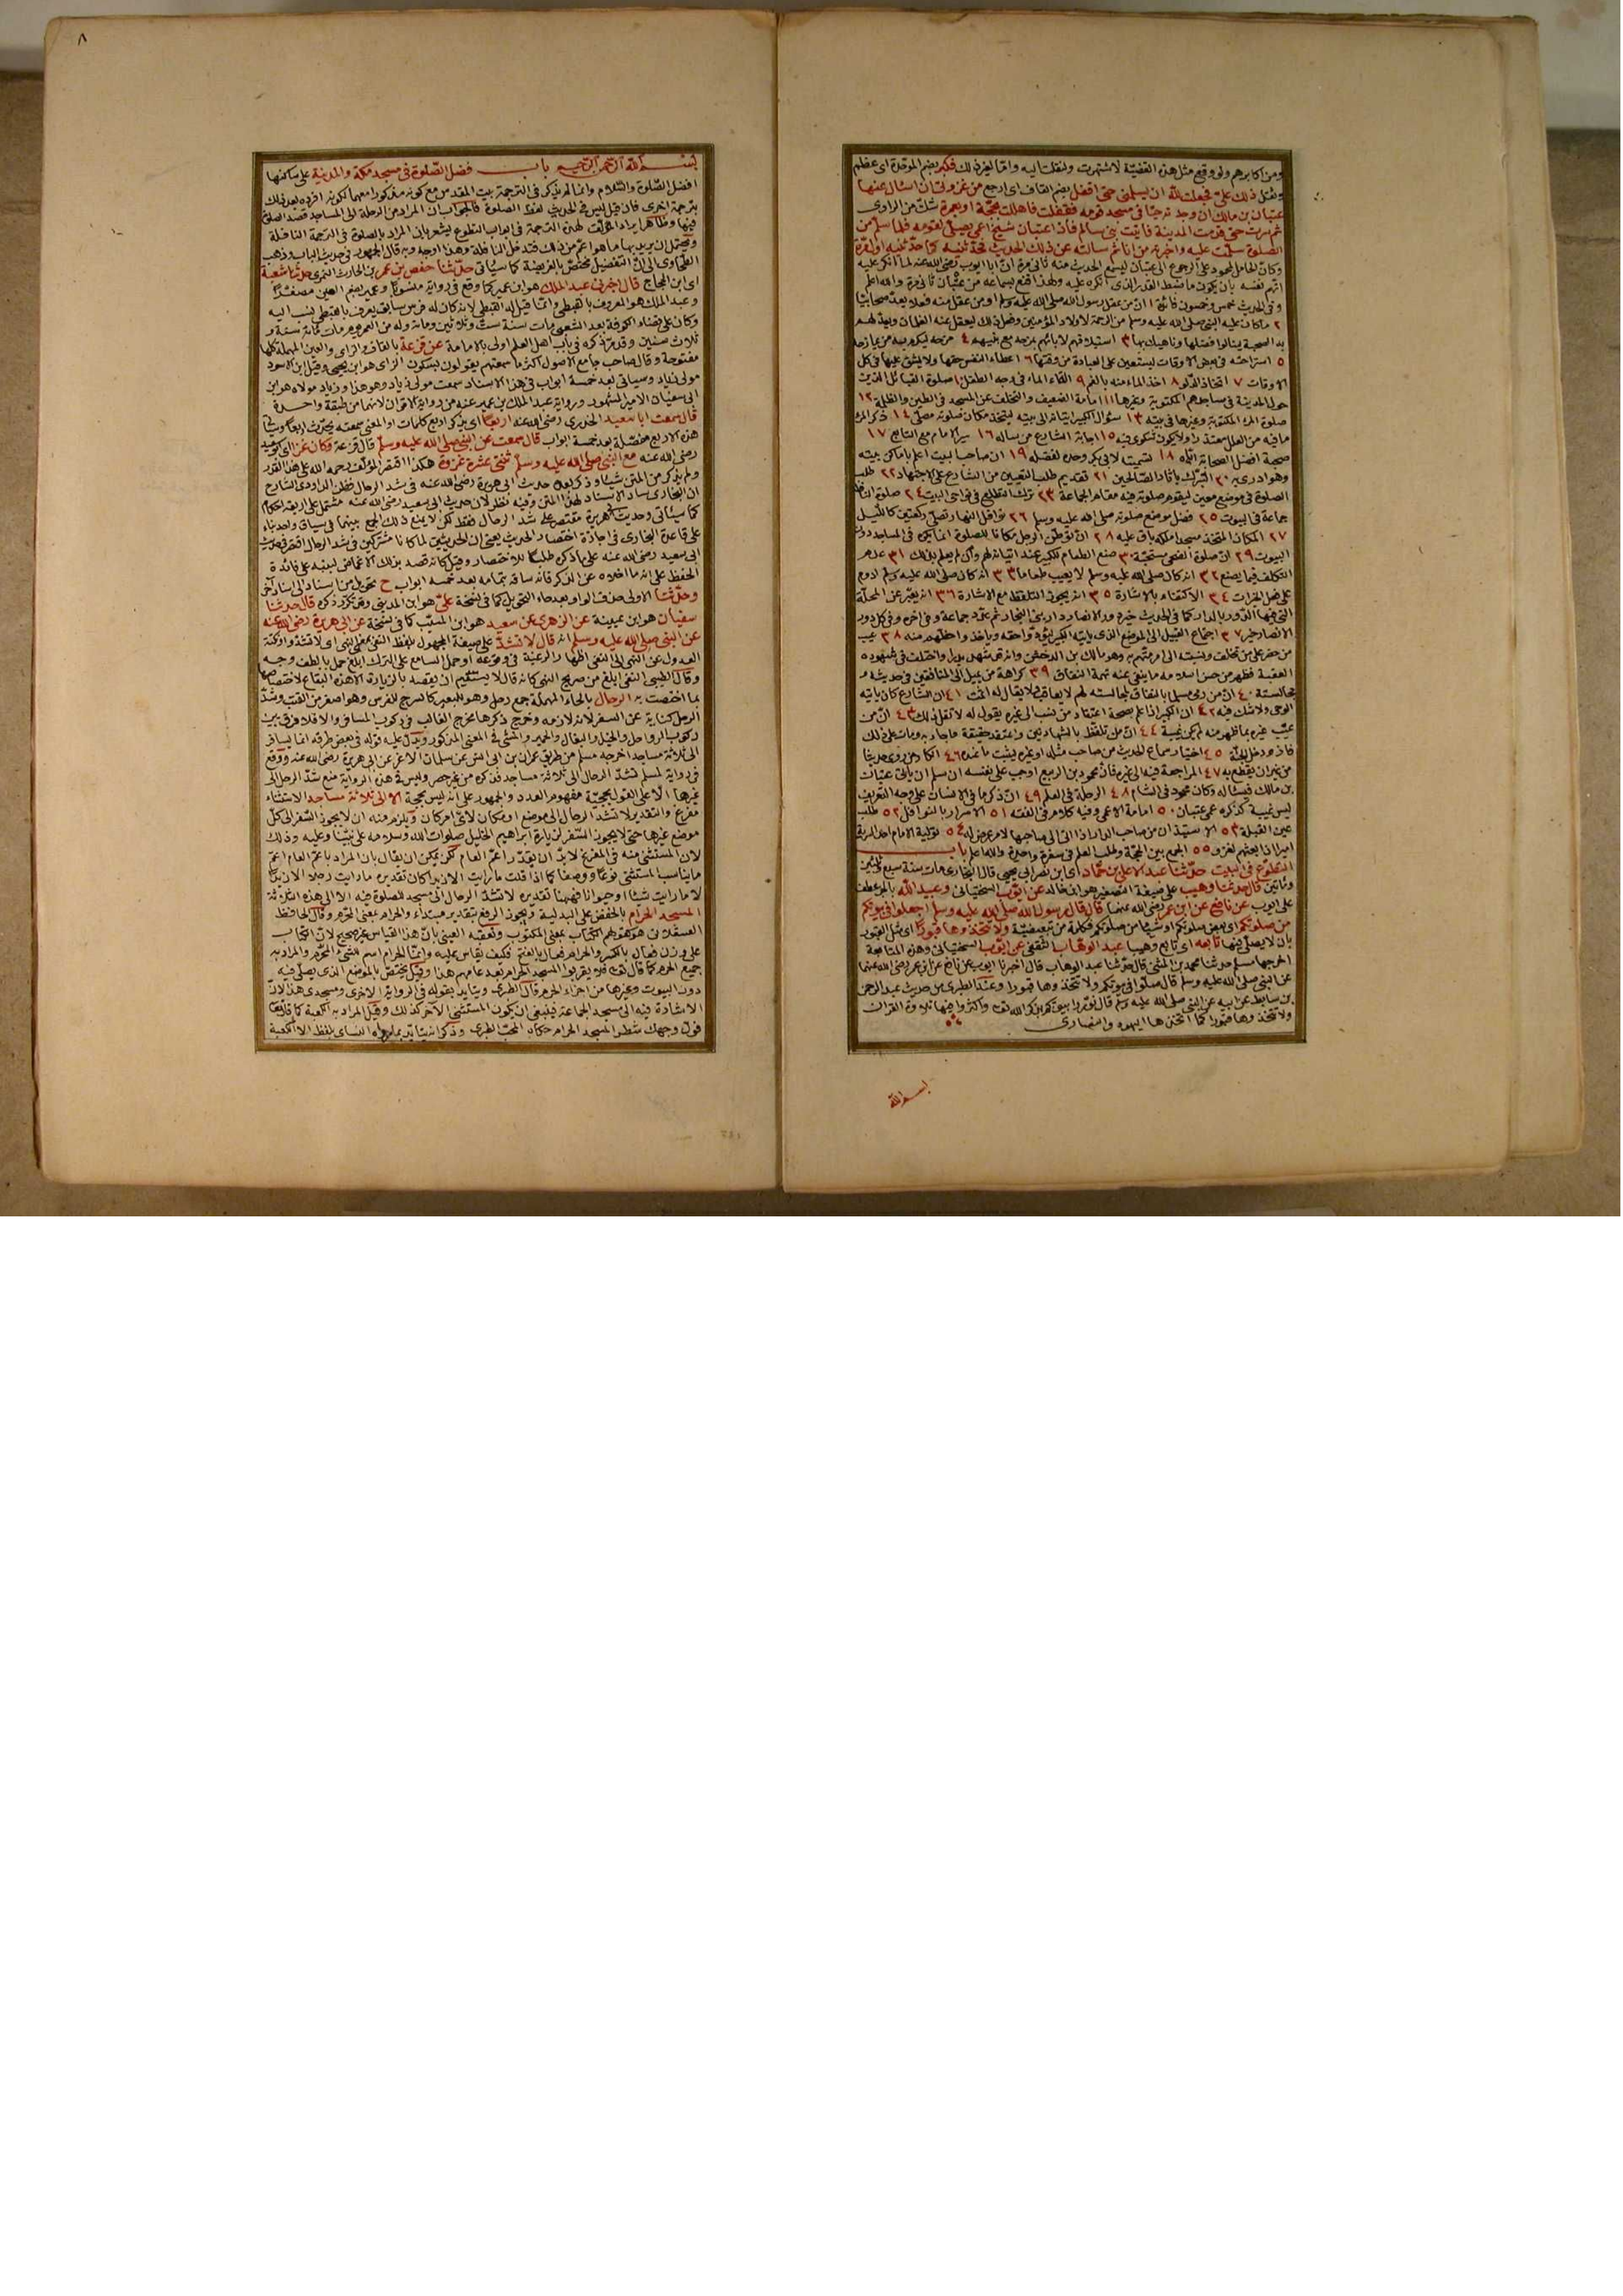 ومن اكابرهم ولو وقع مثل هذه القضية لاشتهرت ولنقلت اليه واما لغير ذلك فكبر بضم الموحدة اى عظم
وثقل ذلك على فجعلت لله ان يسلمنى حتى اقفل بضم القاف اى ارجع من غزوتى ان اسال عنها
عتبان بن مالك ان وجدته حيا فى مسجد قومه فقفلت فاهللت بحجة او بعمرة شك من الراوى
ثم سرت حتى قدمت المدينة فاتيت بنى سالم فاذا عتبان شيخ اعمى يصلى لقومه فلما سلم من
الصلوة سلمت عليه واخبرته من انا ثم سالته عن ذلك الحديث فحدثنيه كما حدثنيه اول مرة
وكان الحامل لمحمود على الرجوع الى عتبان ليسمع الحديث منه ثانى مرة ان ابا ايوب رضى الله عنه لما انكر عليه
اتهم نفسه بان يكون ما ضبط القدر الذى انكره عليه ولهذا قنع بسماعه من عتبان ثانى مرة والله اعلم
وفى الحديث خمس وخمسون فائدة ١ ان من عقل رسول الله صلى الله عليه وسلم او من عقل منه فعلا يعد صحابيا
٢ ما كان عليه النبى صلى الله عليه وسلم من الرحمة لاولاد المؤمنين وفعل ذلك ليعقل عنه الغلمان ويعد لهم
به الصحبة لينالوا فضلها وناهيك بها ٣ استيلافهم لابائهم بمزحه مع بنيهم ٤ مزحه ليكرم به من يمازحه
٥ استراحته فى بعض الاوقات ليستعين على العبادة من وقتها ٦ اعطاء النفس حقها ولا يشق عليها فى كل
الاوقات ٧ اتخاذ الدلو ٨ اخذ الماء منه بالفم ٩ القاء الماء فى وجه الطفل ١٠ صلوة القبائل الذين
حول المدينة فى مساجدهم المكتوبة وغيرها ١١ امامة الضعيف والتخلف عن المسجد فى الطين والظلمة ١٢
صلوة المرء المكتوبة وغيرها فى بيته ١٣ سؤال الكبير اتيانه الى بيته ليتخذ مكان صلوته مصلى ١٤ ذكر المرء
ما فيه من العلل معتذرا ولا يكون شكوى فيه ١٥ اجابة الشارع من ساله ١٦ سير الامام مع التابع ١٧
صحبة افضل الصحابة اياه ١٨ تسميته لابى بكر وحده لفضله ١٩ ان صاحب البيت اعلم باماكن بيته
وهو ادرى به ٢٠ التبرك باثار الصالحين ٢١ تقديم طلب التعيين من الشارع على الاجتهاد ٢٢ طلب
الصلوة فى موضع معين ليقوم صلوته فيه مقام الجماعة ٢٣ ترك التطلع فى نواحى البيت ٢٤ صلوة النافلة
جماعة فى البيوت ٢٥ فضل موضع صلوته صلى الله عليه وسلم ٢٦ نوافل النهار تصلى ركعتين كالليل
٢٧ المكان المتخذ مسجدا ملكه باق عليه ٢٨ ان توطن الرجل مكانا للصلوة انما يكره فى المساجد دون
البيوت ٢٩ ان صلوة الضحى مستحبة ٣٠ صنع الطعام للكبير عند اتيانه لهم وان لم يعلم بذلك ٣١ عدم
التكلف فيما يصنع ٣٢ انه كان صلى الله عليه وسلم لا يعيب طعاما ٣٣ انه كان صلى الله عليه وسلم ادوم
على فعل الخيرات ٣٤ الاكتفاء بالاشارة ٣٥ انه يجوز التلفظ مع الاشارة ٣٦ انه يعبر عن المحلة
التى فيها الدور بالدار كما فى الحديث خير دور الانصار دار بنى النجار ثم عدد جماعة وفى اخره وفى كل دور
الانصار خير ٣٧ اجتماع القبيل الى الموضع الذى ياتيه الكبير ليؤدوا حقه وياخذوا حظهم منه ٣٨ عيب
من حضر على من تخلف ونسبته الى امر يتهم به وهو مالك بن الدخشن وانه قد شهد بدرا واختلف فى شهوده
العقبة فظهر من حسن اسلامه ما ينفى عنه تهمة النفاق ٣٩ كراهة من يميل الى المنافقين فى حديثه و
مجالسته ٤٠ ان من رمى مسلما بالنفاق لمجالسته لهم لا يعاقب ولا يقال له اثمت ٤١ ان الشارع كان ياتيه
الوحى ولا شك فيه ٤٢ ان الكبير اذا علم بصحة اعتقاد من نسب الى غيره يقول له لا تقل ذلك ٤٣ ان من
عيب غيره بما ظهر منه لم يكن غيبة ٤٤ ان من تلفظ بالشهادتين واعتقد حقيقة ما جاء به ومات على ذلك
فاز ودخل الجنة ٤٥ اختيار سماع الحديث من صاحب مثله او غيره ليثبت ما عنده ٤٦ انكار من روى حديثا
من غير ان يقطع به ٤٧ المراجعة فيه الى غيره فان محمود بن الربيع اوجب على نفسه ان سلم ان ياتى عتبان
بن مالك فيساله وكان محمود فى الشام ٤٨ الرحلة فى العلم ٤٩ ان ذكر ما فى الانسان على وجه التعريف
ليس غيبة كذكره عمى عتبان ٥٠ امامة الاعمى وفيه كلام فى الفقه ٥١ الاسرار بالنوافل ٥٢ طلب
عين القبلة ٥٣ الاستيذان من صاحب الدار اذا اتى الى صاحبها لامر عرض له ٥٤ تولية الامام احد السرية
اميرا اذا بعثهم لغزو ٥٥ الجمع بين الحجة وطلب العلم فى سفرة واحدة والله اعلم باب
التطوع فى البيت حدثنا عبد الاعلى بن حماد اى ابن نصر ابى يحيى قال البخارى مات سنة سبع وثلثين
ومائتين قال حدثنا وهيب على صيغة التصغير هو ابن خالد عن ايوب السختيانى وعبيد الله بالجر عطف
على ايوب عن نافع عن ابن عمر رضى الله عنهما قال قال رسول الله صلى الله عليه وسلم اجعلوا فى بيوتكم
من صلوتكم اى بعض صلوتكم او شيئا من صلوتكم فكلمة من تبعيضية ولا تتخذوها قبورا اى مثل القبور
بان لا يصلى فيها تابعه اى تابع وهيبا عبد الوهاب الثقفى عن ايوب السختيانى وهذه المتابعة
اخرجها مسلم حدثنا محمد بن المثنى قال حدثنا عبد الوهاب قال اخبرنا ايوب عن نافع عن ابن عمر رضى الله عنهما
عن النبى صلى الله عليه وسلم قال صلوا فى بيوتكم ولا تتخذوها قبورا وعند الطبرى من حديث عبد الرحمن
بن سابط عن ابيه عن النبى صلى الله عليه وسلم قال نوروا بيوتكم بذكر الله تعالى واكثروا فيها تلاوة القران
ولا تتخذوها قبورا كما اتخذها اليهود والنصارى
بسم الله
٨
بسم الله الرحمن الرحيم باب فضل الصلوة فى مسجد مكة والمدينة على ساكنها
افضل الصلوة والسلام وانما لم يذكر فى الترجمة بيت المقدس مع كونه مذكورا معهما لكونه افرده بعد ذلك
بترجمة اخرى فان قيل ليس فى الحديث لفظ الصلوة فالجواب ان المراد من الرحلة الى المساجد قصد الصلوة
فيها وظاهر ايراد المؤلف لهذه الترجمة فى ابواب التطوع يشعر بان المراد بالصلوة فى الترجمة النافلة
ويحتمل ان يريد بها ما هو اعم من ذلك فتدخل النافلة وهذا اوجه وبه قال الجمهور فى حديث الباب وذهب
الطحاوى الى ان التفضيل مختص بالفريضة كما سياتى حدثنا حفص بن عمر بن الحارث النمرى حدثنا شعبة
اى ابن الحجاج قال اخبرنى عبد الملك هو ابن عمير كما وقع فى رواية منسوبا وعمير بضم العين مصغرا
وعبد الملك هو المعروف بالقبطى وانما قيل له القبطى لانه كان له فرس سابق يعرف بالقبطى ينسب اليه
وكان على قضاء الكوفة بعد الشعبى مات سنة ست وثلاثين ومائة وله من العمر يوم مات مائة سنة و
ثلاث سنين وقد مر ذكره فى باب اهل العلم اولى بالامامة عن قزعة بالقاف والزاى والعين المهملة كلها
مفتوحة وقال صاحب جامع الاصول اكثر ما سمعتهم يقولون بسكون الزاى هو ابن يحيى وقيل ابن الاسود
مولى زياد وسياتى بعد خمسة ابواب فى هذا الاسناد سمعت مولى زياد وهو هذا وزياد مولاه هو ابن
ابى سفيان الامير المشهور ورواية عبد الملك بن عمير عنه من رواية الاقران لانهما من طبقة واحدة
قال سمعت ابا سعيد الخدرى رضى الله عنه اربعا اى يذكر اربع كلمات او المعنى سمعته يحدث اربعا وسياتى
هذه الاربع مفصلة بعد خمسة ابواب قال سمعت عن النبى صلى الله عليه وسلم قال قزعة وكان غزا اى ابو سعيد
رضى الله عنه مع النبى صلى الله عليه وسلم ثنتى عشرة غزوة هكذا اقتصر المؤلف رحمه الله على هذا القدر
ولم يذكر من المتن شيئا وذكر بعده حديث ابى هريرة رضى الله عنه فى شد الرحال فظن الداودى الشارح
ان البخارى ساق الاسناد لهذا المتن وفيه نظر لان حديث ابى سعيد رضى الله عنه مشتمل على اربعة احكام
كما سياتى وحديث ابى هريرة مقتصر على شد الرحال فقط لكن لا يمنع ذلك الجمع بينهما فى سياق واحد بناء
على قاعدة البخارى فى اجازة اختصار الحديث يعنى ان الحديثين لما كانا مشتركين فى شد الرحال اقتصر فى حديث
ابى سعيد رضى الله عنه على ما ذكره طلبا للاختصار وقيل كانه قصد بذلك الاغماض لينبه على فائدة
الحفظ على انه ما اخلاه عن الذكر فانه ساقه بتمامه بعد خمسة ابواب ح تحويل من اسناد الى اسناد آخر
وحدثنا الاولى حذف الواو بعد حاء التحويل كما فى نسخة على هو ابن المدينى وقد تكرر ذكره قال حدثنا
سفيان هو ابن عيينة عن الزهرى عن سعيد هو ابن المسيب كما فى نسخة عن ابى هريرة رضى الله عنه
عن النبى صلى الله عليه وسلم انه قال لا تشد على صيغة المجهول بلفظ النفى بمعنى النهى اى لا تشدوا ونكتة
العدول عن النهى الى النفى اظهار الرغبة فى وقوعه او حمل السامع على الترك ابلغ حمل بالطف وجه
وقال الطيبى النفى ابلغ من صريح النهى كانه قال لا يستقيم ان يقصد بالزيارة الا هذه البقاع لاختصاصها
بما اختصت به الرحال بالحاء المهملة جمع رحل وهو للبعير كالسرج للفرس وهو اصغر من القتب وشد
الرحل كناية عن السفر لانه لازمه وخرج ذكرها مخرج الغالب فى ركوب المسافر والا فلا فرق بين
ركوب الرواحل والخيل والبغال والحمير والمشى فى المعنى المذكور ويدل عليه قوله فى بعض طرقه انما يسافر
الى ثلاثة مساجد اخرجه مسلم من طريق عمران بن ابى انس عن سلمان الاغر عن ابى هريرة رضى الله عنه ووقع
فى رواية لمسلم تشد الرحال الى ثلاثة مساجد فذكره من غير حصر وليس فى هذه الرواية منع شد الرحل الى
غيرها الا على القول بحجية مفهوم العدد والجمهور على انه ليس بحجة الا الى ثلاثة مساجد الاستثناء
مفرغ والتقدير لا تشد الرحال الى موضع او مكان لاى امر كان ويلزم منه ان لا يجوز السفر الى كل
موضع غيرها حتى لا يجوز السفر لزيارة ابراهيم الخليل صلوات الله وسلامه على نبينا وعليه وذلك
لان المستثنى منه فى المفرغ لا بد ان يقدر اعم العام لكن يمكن ان يقال بان المراد باعم العام اعم
ما يناسب المستثنى نوعا ووصفا كما اذا قلت ما رايت الا زيدا كان تقديره ما رايت رجلا الا زيدا
لا ما رايت شيئا او حيوانا فههنا تقديره لا تشد الرحال الى مسجد للصلوة فيه الا الى هذه الثلاثة
المسجد الحرام بالخفض على البدلية ويجوز الرفع بتقدير مبتداء والحرام بمعنى المحرم وقال الحافظ
العسقلانى هو كقولهم الكتاب بمعنى المكتوب وتعقبه العينى بان هذا القياس غير صحيح لان الكتاب
على وزن فعال بالكسر والحرام فعال بالفتح فكيف يقاس عليه وانما الحرام اسم للشىء المحرم والمراد به
جميع الحرم كما قال تعالى فلا يقربوا المسجد الحرام بعد عامهم هذا وقيل يختص بالموضع الذى يصلى فيه
دون البيوت وغيرها من اجزاء الحرم قال الطبرى ويتايد بقوله فى الرواية الاخرى ومسجدى هذا لان
الاشارة فيه الى مسجد الجماعة فينبغى ان يكون المستثنى الاخر كذلك وقيل المراد به الكعبة كما قال تعالى
فول وجهك شطر المسجد الحرام حكاه المحب الطبرى وذكر انه يتايد بما رواه النسائى بلفظ الا الكعبة